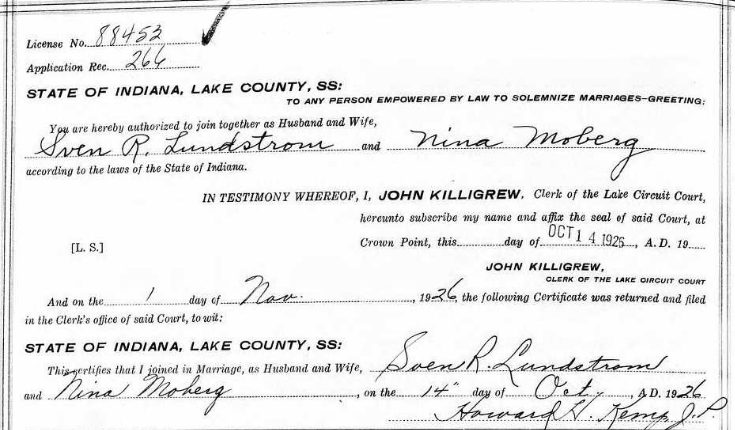 License No. 88453
Application Rec. 266
STATE OF INDIANA, LAKE COUNTY, SS:
TO ANY PERSON EMPOWERED BY LAW TO SOLEMNIZE MARRIAGES-GREETING:
You are hereby authorized to join together as Husband and Wife,
Sven R. Lundstrom and Nina Moberg
according to the laws of the State of Indiana.
IN TESTIMONY WHEREOF, I, JOHN KILLIGREW, Clerk of the Lake Circuit Court,
hereunto subscribe my name and affix the seal of said Court, at
[L. S.] Crown Point, this day of OCT 14 1926, A. D. 19
JOHN KILLIGREW,
CLERK OF THE LAKE CIRCUIT COURT
And on the 1 day of Nov. , 1926, the following Certificate was returned and filed
in the Clerk's office of said Court, to wit:
STATE OF INDIANA, LAKE COUNTY, SS:
This certifies that I joined in Marriage, as Husband and Wife, Sven R. Lundstrom
and Nina Moberg , on the 14" day of Oct. , A.D. 1926
Howard H. Kemp J.P.